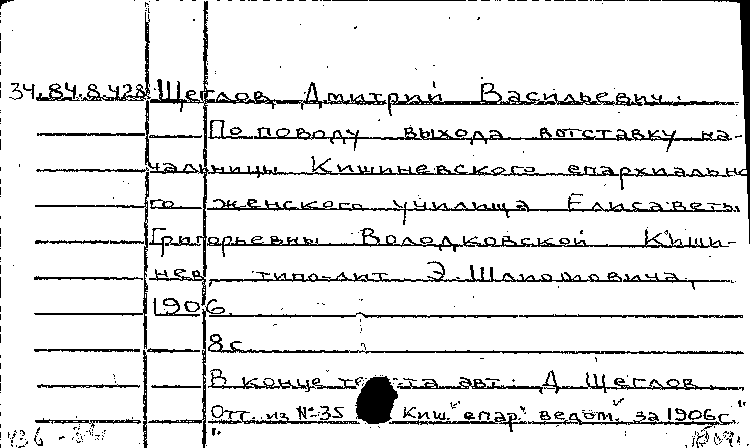 34.84.8.428 Щеглов, Дмитрий Васильевич.
По поводу выхода вотставку на-
чальницы Кишиневского епархиально
го женского училища Елисаветы
Григорьевны Володковской Киши-
нев, типо-лит Э. Шлиомовича,
1906.
8с
В конце текста авт: Д Щеглов
Отт. из №35 Киш. "епар." ведом." за 1906г."
436